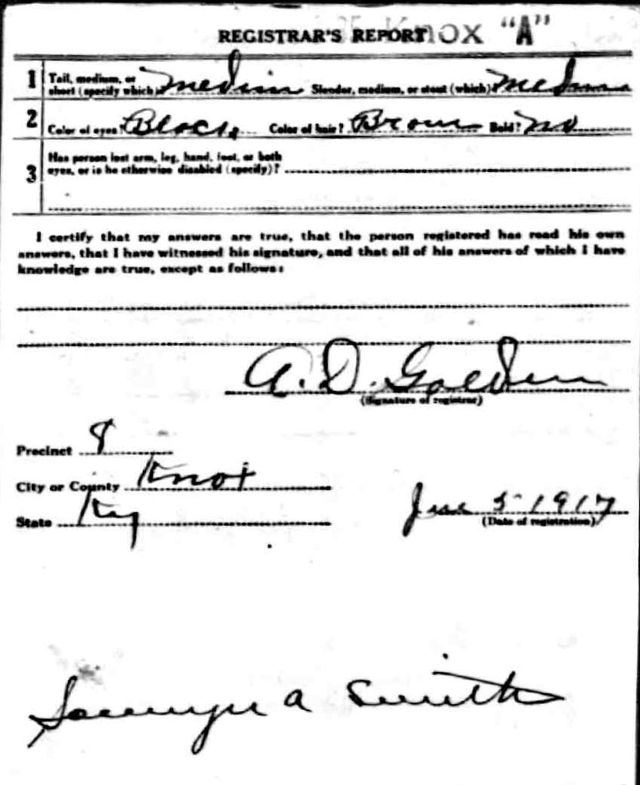 REGISTRAR'S REPORT Knox "A"
1 Tall, medium, or short (specify which) Medium Slender, medium, or stout (which) Medium
2 Color of eyes? Black Color of hair? Brown Bald? No
3 Has person lost arm, leg, hand, foot, or both
eyes, or is he otherwise disabled (specify)?
I certify that my answers are true, that the person registered has read his own
answers, that I have witnessed his signature, and that all of his answers of which I have
knowledge are true, except as follows:
A. D. Golden
(Signature of registrar)
Precinct 8
City or County Knox
State Ky
June 5 1917
(Date of registration)
A Smith